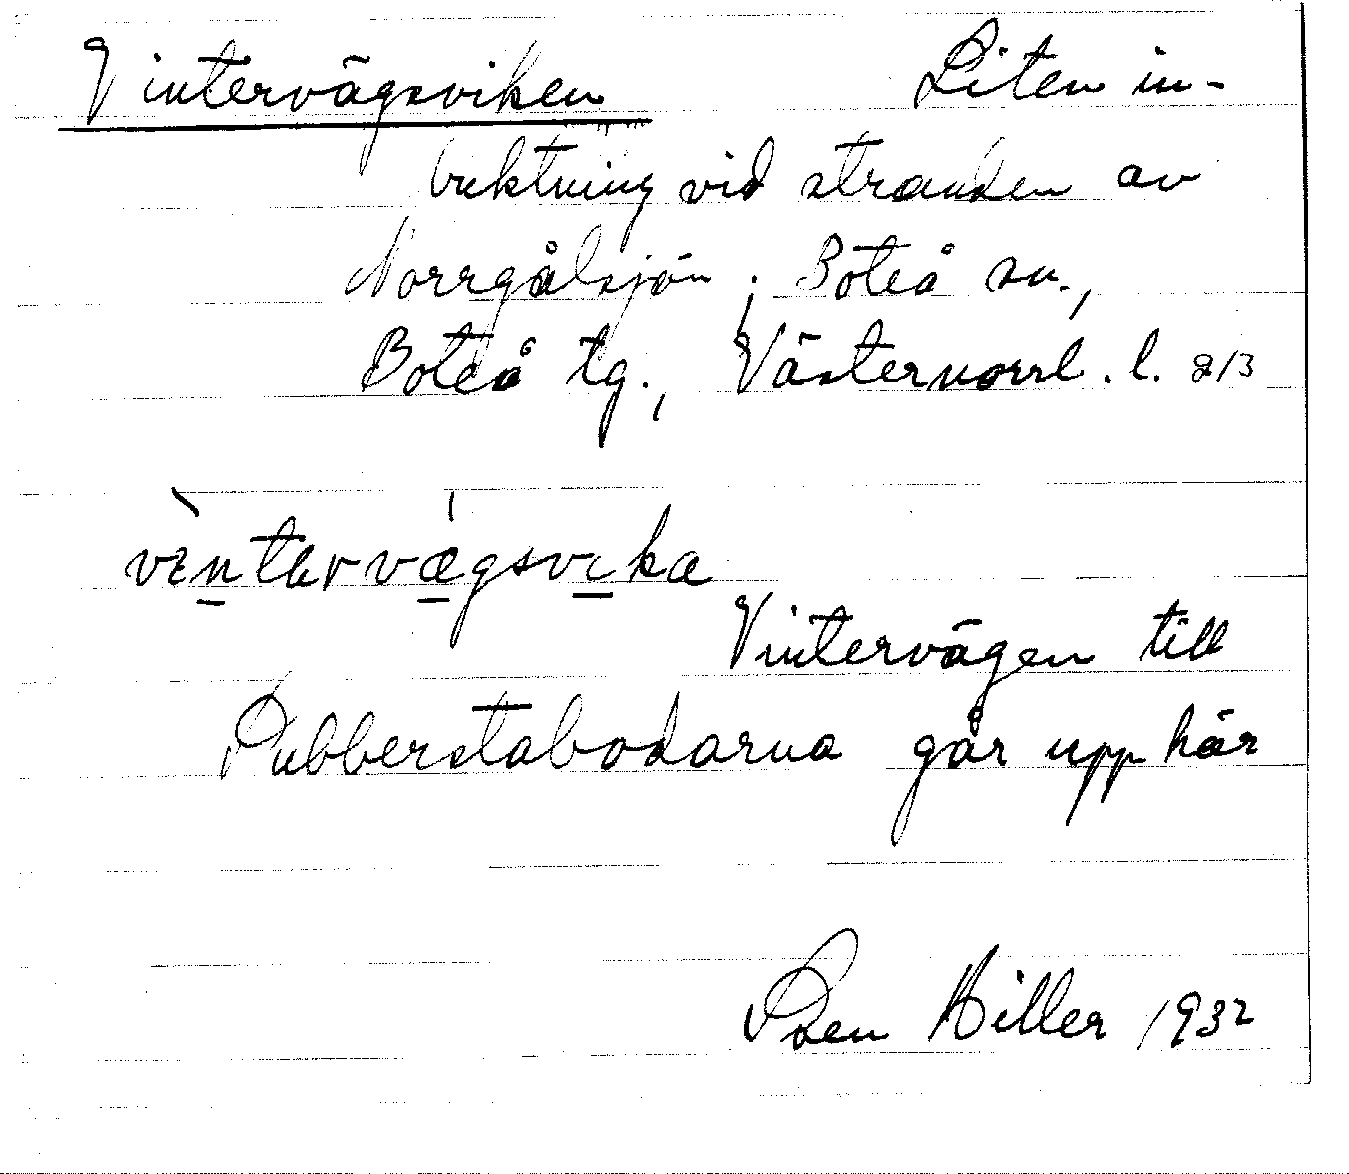 Vintervägsviken Liten in-
buktning vid stranden av
Norrgålsjön; Boteå sn.,
Boteå tg., Västernorrl. l. 213
vìntərvǽgsvika
Vintervägen till
Subberstabodarna går upp här
Sven Hiller 1932